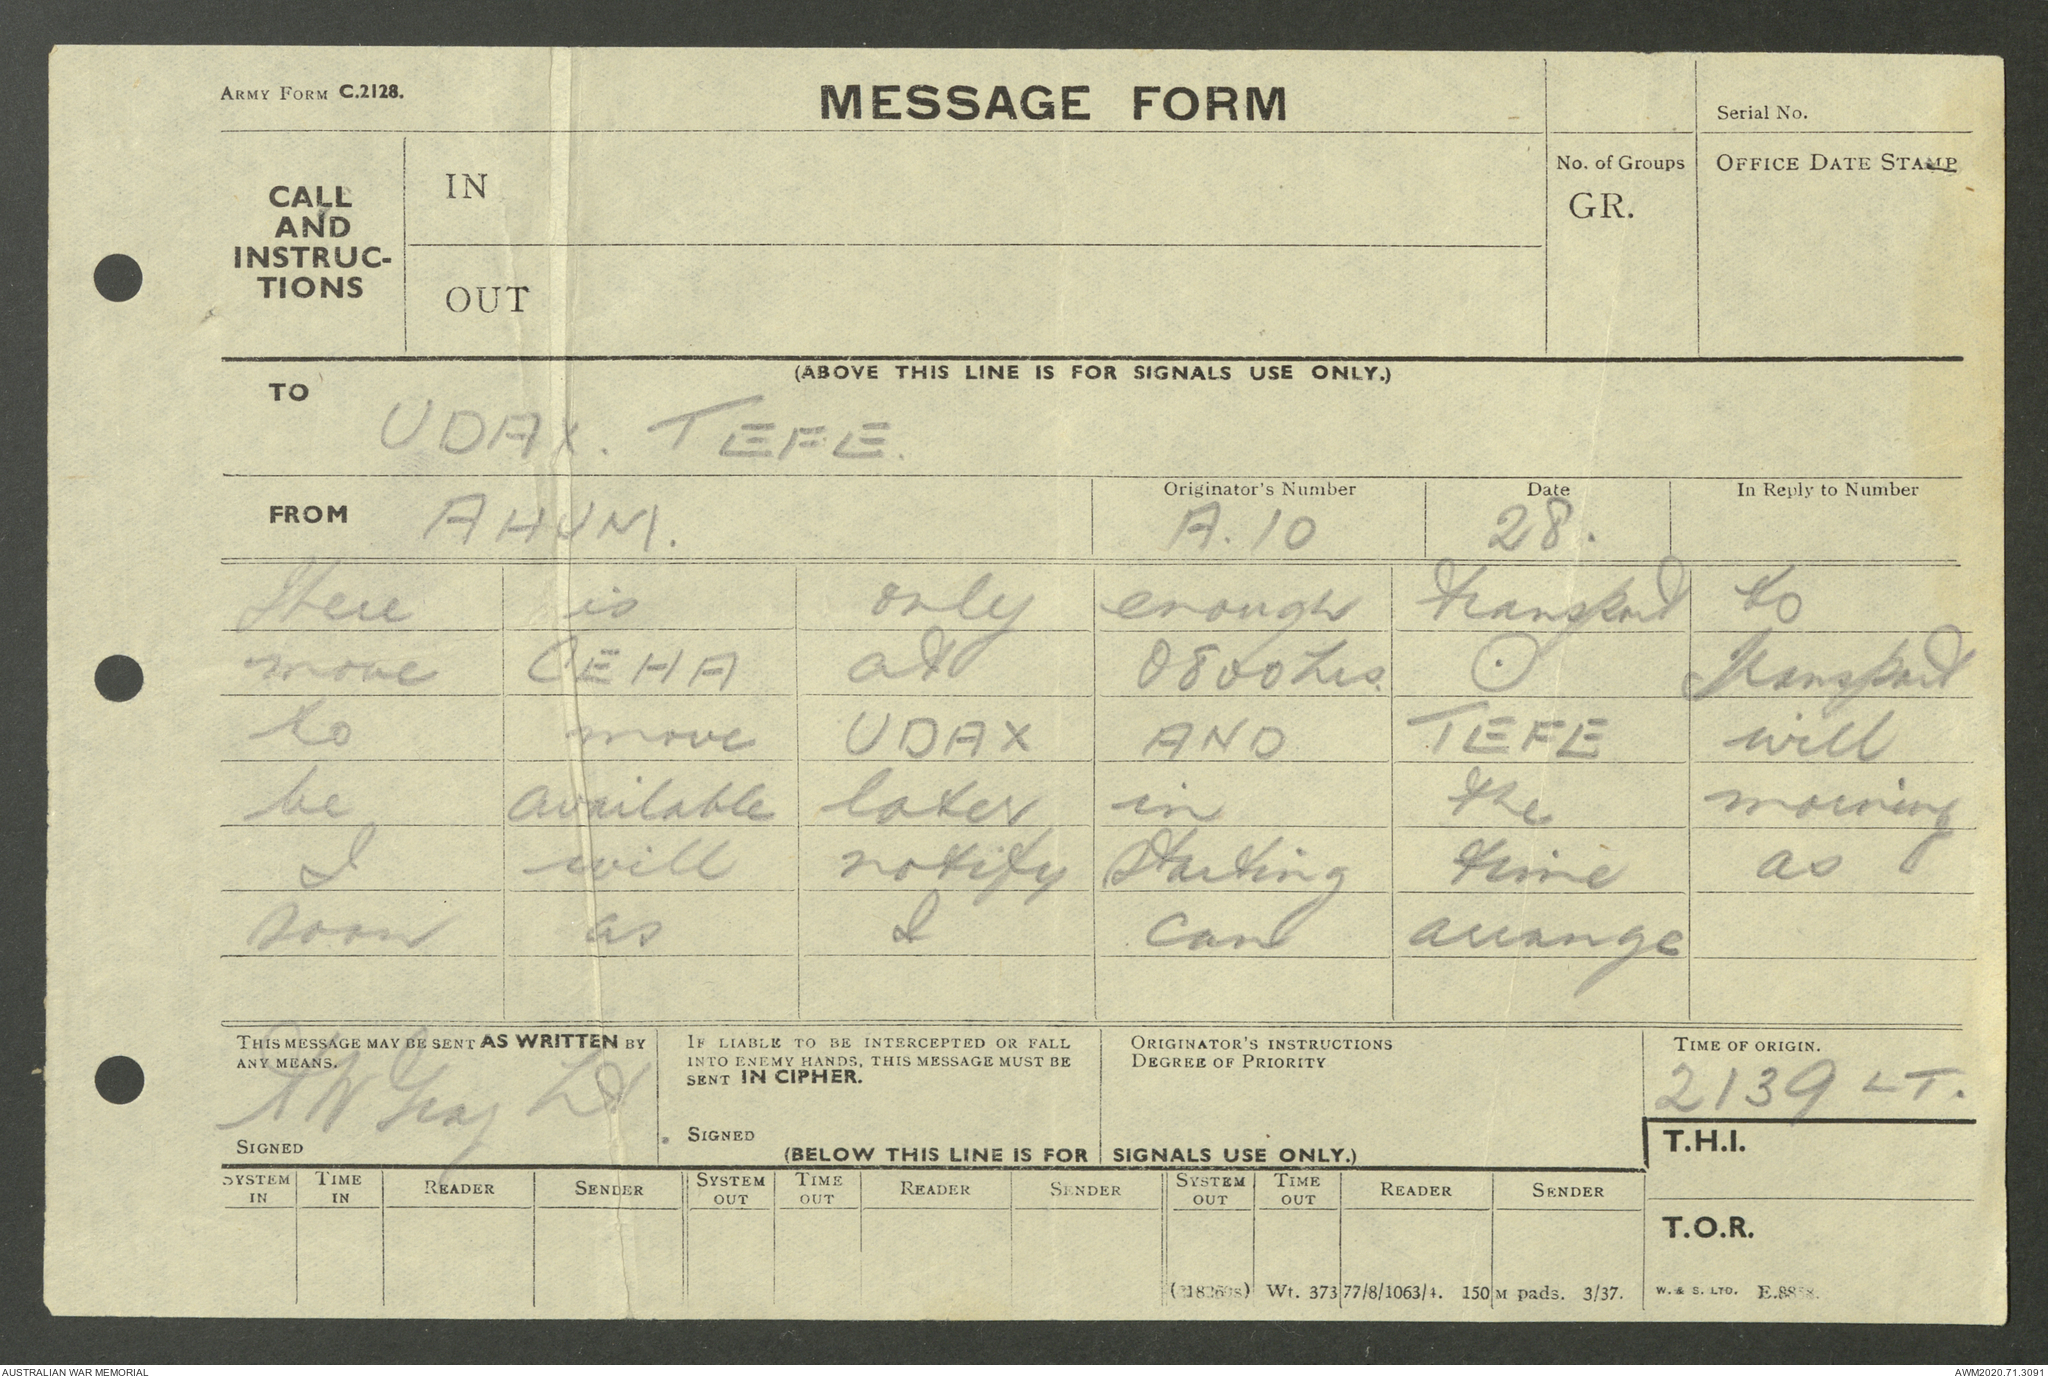 ARMY FORM C.2128.
MESSAGE FORM
Serial No.
CALL AND INSTRUC-TIONS
IN
OUT
No. of Groups
GR.
OFFICE DATE STAMP
(ABOVE THIS LINE IS FOR SIGNALS USE ONLY.)
TO
UDAX. TEFE.
FROM AHUM.
Originator's Number
A.10
Date
28.
In Reply to Number
There is only enough transport to
move CEHA at 0800 hrs. ⊙ Transport
to move UDAX AND TEFE will
be available later in the morning
I will notify starting time as
soon as I can arrange
THIS MESSAGE MAY BE SENT AS WRITTEN BY
ANY MEANS.
Gray Lt
SIGNED
IF LIABLE TO BE INTERCEPTED OR FALL
INTO ENEMY HANDS, THIS MESSAGE MUST BE
SENT IN CIPHER.
SIGNED
ORIGINATOR'S INSTRUCTIONS
DEGREE OF PRIORITY
TIME OF ORIGIN.
2139 LT.
(BELOW THIS LINE IS FOR SIGNALS USE ONLY.)
T.H.I.
T.O.R.
SYSTEM IN TIME IN READER SENDER SYSTEM OUT TIME OUT READER SENDER SYSTEM OUT TIME OUT READER SENDER
Wt. 37377/8/1063/4. 150M pads. 3/37. W. & S. LTD.
AUSTRALIAN WAR MEMORIAL
AWM2020.71.3091